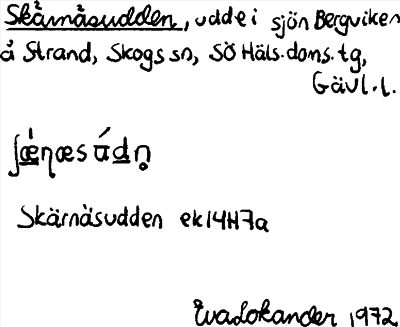 Skårnåsudden, udde i sjön Bergviken
å Strand, Skogs sn, Sö Häls. doms. tg,
Gävl. l.
ʃæ̀ηæsúdn̥
Skärnäsudden ek 14H7a
Eva Lokander 1972